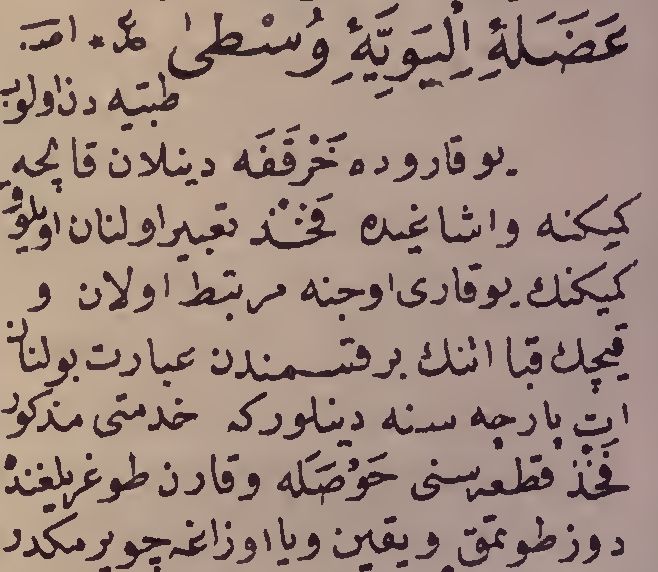 عَضَلَۀِ اِلْیَوِیَّۀِ وُسْطیٰ
طبتیه دن اولوب
یوقاروده خَرْقَفَه دینلان قالچه
کمیکنه واشاغیده فَخْذ تعبیر اولنان اویلوق
کمیکنك یوقاری اوجنه مربتط اولان و
قیچك قبا اتنك بر قسمندن عبارت بولنان
ات پارچه سنه دینلورکه خدمتی مذکور
فَخْذ قطعه سنی حَوْصَله وقارن طوغریلغنده
دوز طوتمق ویقین ویا اوزاغه چویرمکدر